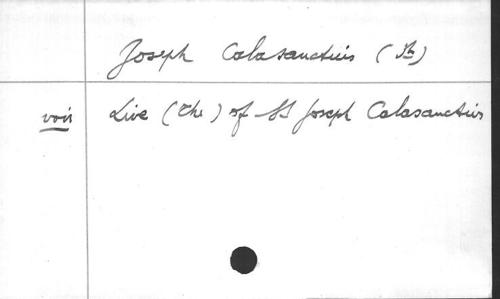 Joseph Calasanctius (St)
voir Live (The) of St Joseph Calasanctius